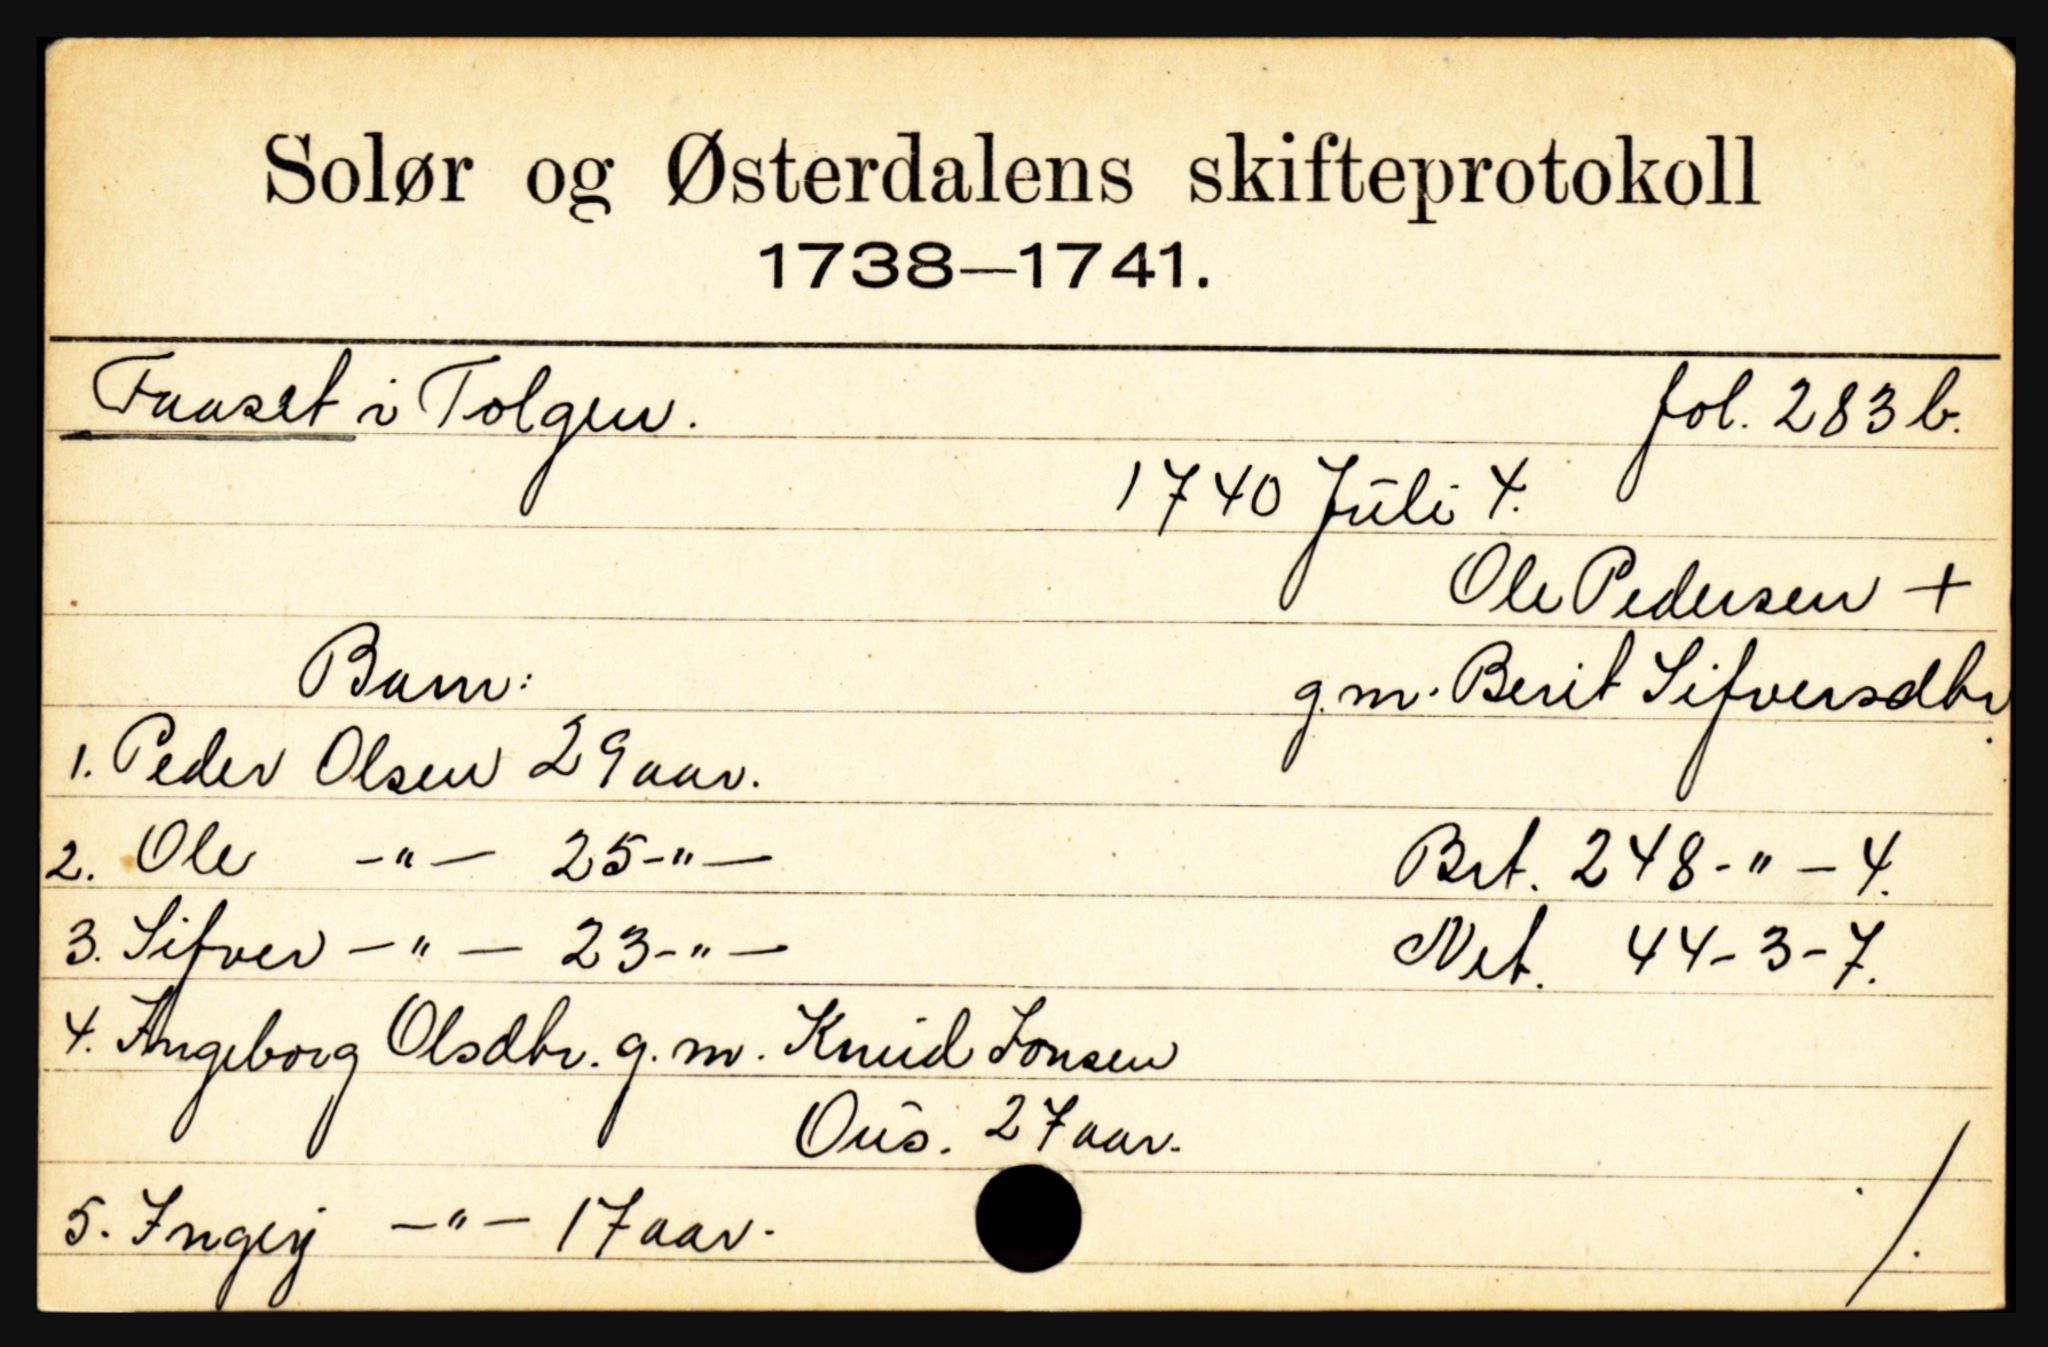 Solør og Østerdalens skifteprotokoll
1738—1741.
Faaset i Tolgen. fol. 283 b.
1740 Juli 4.
Ole Pedersen +
Barn: g.m. Berit Sifversdtr.
1. Peder Olsen 29 aar.
2. Ole -"- 25-"- Brt. 248-"-4.
3. Sifver -"- 23-"- Net. 44-3-7.
4. Ingeborg Olsdtr. g.m. Knud Jonsen
Ous. 27 aar.
5. Ingerj -"- 17 aar.
/.